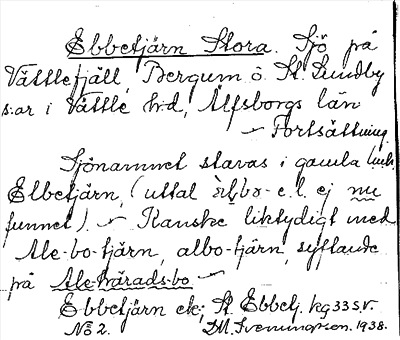 Ebbetjärn Stora. Sjö på
Vättlefjäll, Bergum o. St. Lundby
s:ar i Vättle h:d, Älfsborgs län
– Fortsättning.
Sjönamnet stavas i gamla
Elbetjärn, (uttal e.l. ej nu
funnet). – Kanske liktydigt med
Ale-bo-tjärn, albo-tjärn, syftande
på Ale-härads-bo –
Ebbetjärn ek; St. Ebbetj. kg 33 s.v.
No 2. D.M. Svenungson. 1938.